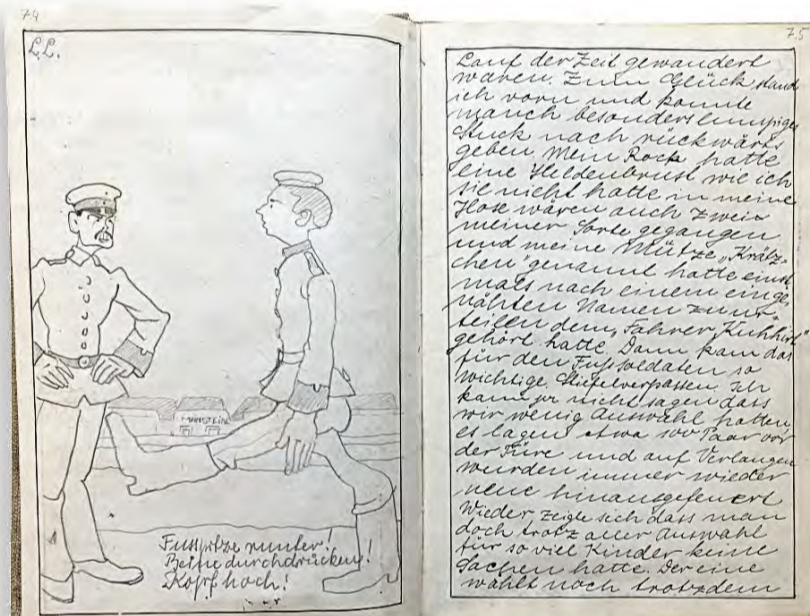 74
L.L.
MANNSTEIN
Fussspitze runter!
Beine durchdrücken!
Kopf hoch!
75
Lauf der Zeit gewandert
waren. Zum Glück stand
ich vorn und konnte
manch besonders lumpiges
Stück nach rückwärts
geben. Mein Rock hatte
eine Heldenbrust wie ich
sie nicht hatte in meine
Hose wären auch zwei
meiner Sorte gegangen
und meine Mütze „Krätz-
chen" genannt hatte einst
mals nach einem einge-
nähten Namen zu ur-
teilen dem „Fahrer Kuhhirt"
gehört hatte. Dann kam das
für den Fußsoldaten so
wichtige Stiefelverpassen. Ich
kann ja nicht sagen dass
wir wenig Auswahl hatten,
es lagen etwa 100 Paar vor
der Türe und auf Verlangen
wurden immer wieder
neue hinausgefeuert
Wieder zeigte sich dass man
doch trotz aller Auswahl
für so viel Kinder keine
Sachen hatte. Der eine
wählt noch trotzdem